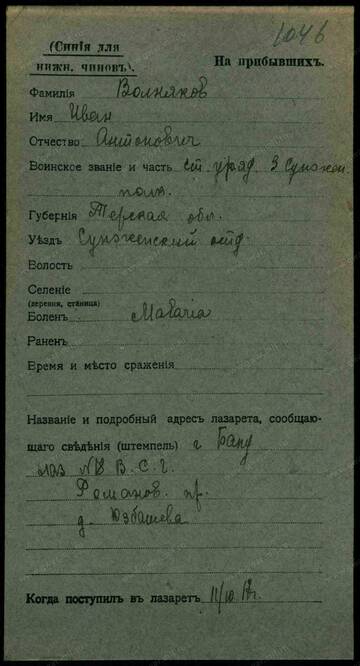 1046
(Синія для
нижн. чиновъ).
На прибывшихъ.
Фамилія Волняков
Имя Иван
Отчество Антонович
Воинское званіе и часть ст. уряд. 3 Сунжен.
полк.
Губернія Терская обл.
Уѣздъ Сунженский отд.
Волость
Селеніе
(деревня, станица)
Боленъ Malaria
Раненъ
Время и мѣсто сраженія
Названіе и подробный адресъ лазарета, сообщаю-
щаго свѣдѣнія (штемпель) г. Баку
лаз №8 В.С.Г.
Романов. пр.
д. Юзбашева
Когда поступилъ въ лазаретъ 11/10 17г.